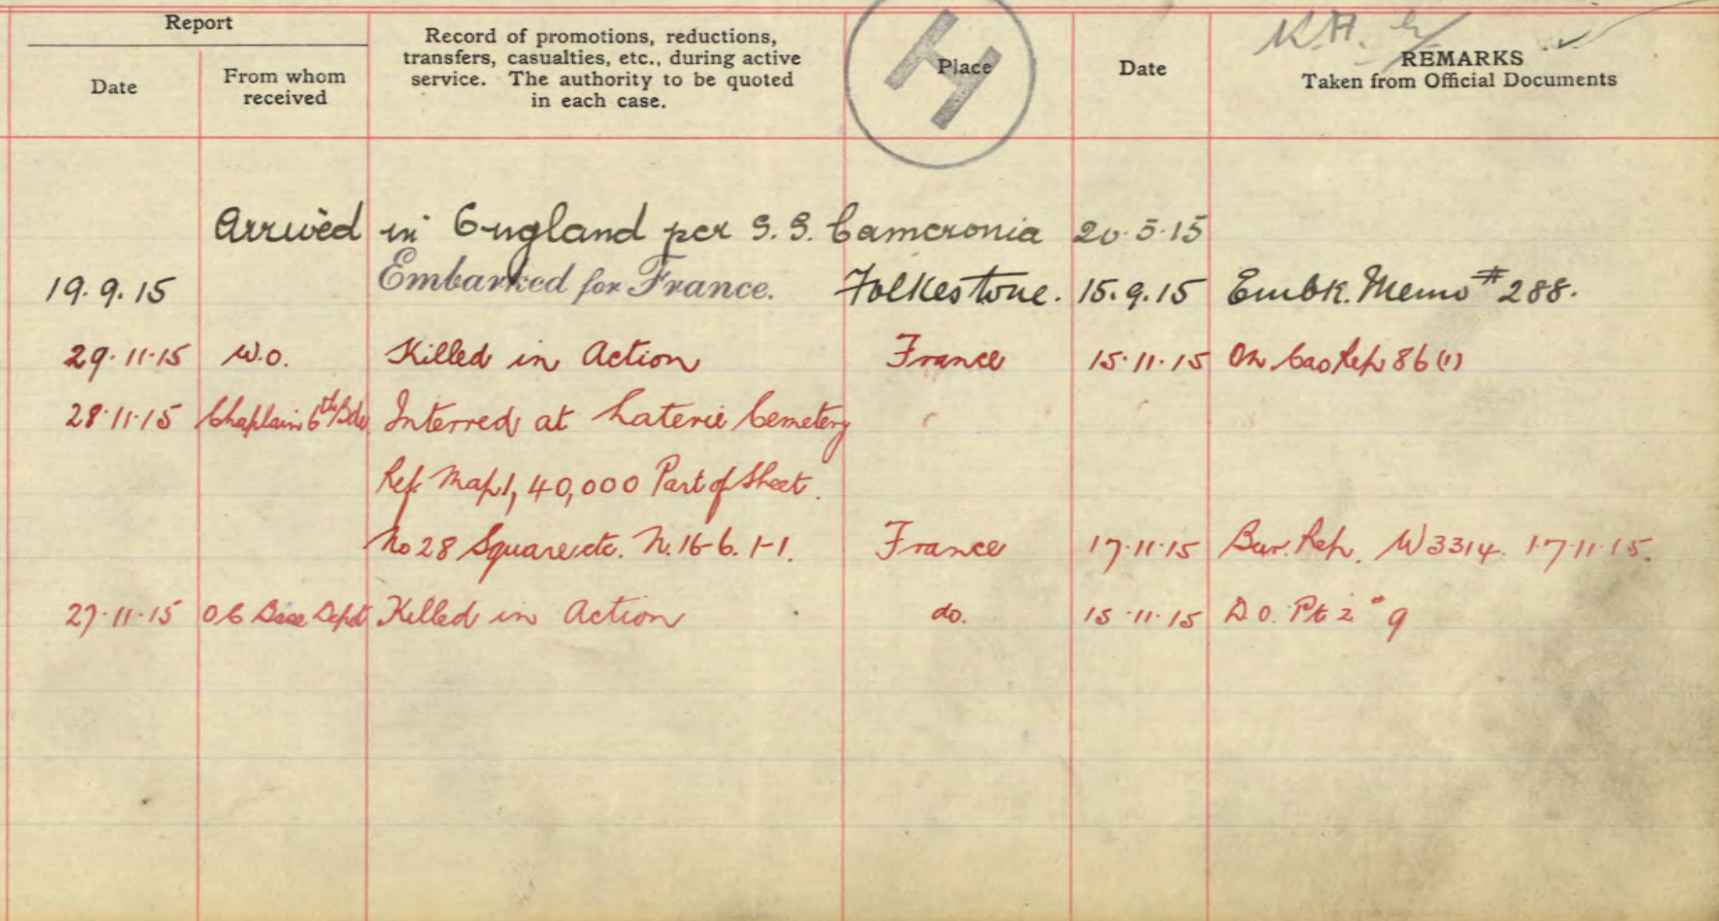 Report
Date
From whom
received
Record of promotions, reductions,
transfers, casualties, etc., during active
service. The authority to be quoted
in each case.
Place
H
Date
REMARKS
Taken from Official Documents
Arrived in England per S.S. Cameronia 20.5.15
19.9.15 Embarked for France. Folkestone. 15.9.15 Embk. Memo #288.
29.11.15 W.O. Killed in Action France 15.11.15 On Cas Rep 86(1)
28.11.15 Chaplain 6th Bde. Interred at Laterie Cemetery
Ref. Map 1, 40,000 Part of Sheet.
No 28 Square etc. N.16-6.1-1. France 17.11.15 Bur. Rep. W3314. 17.11.15.
27.11.15 OC Base Depot Killed in Action do. 15.11.15 D.O. Pt 2 #9